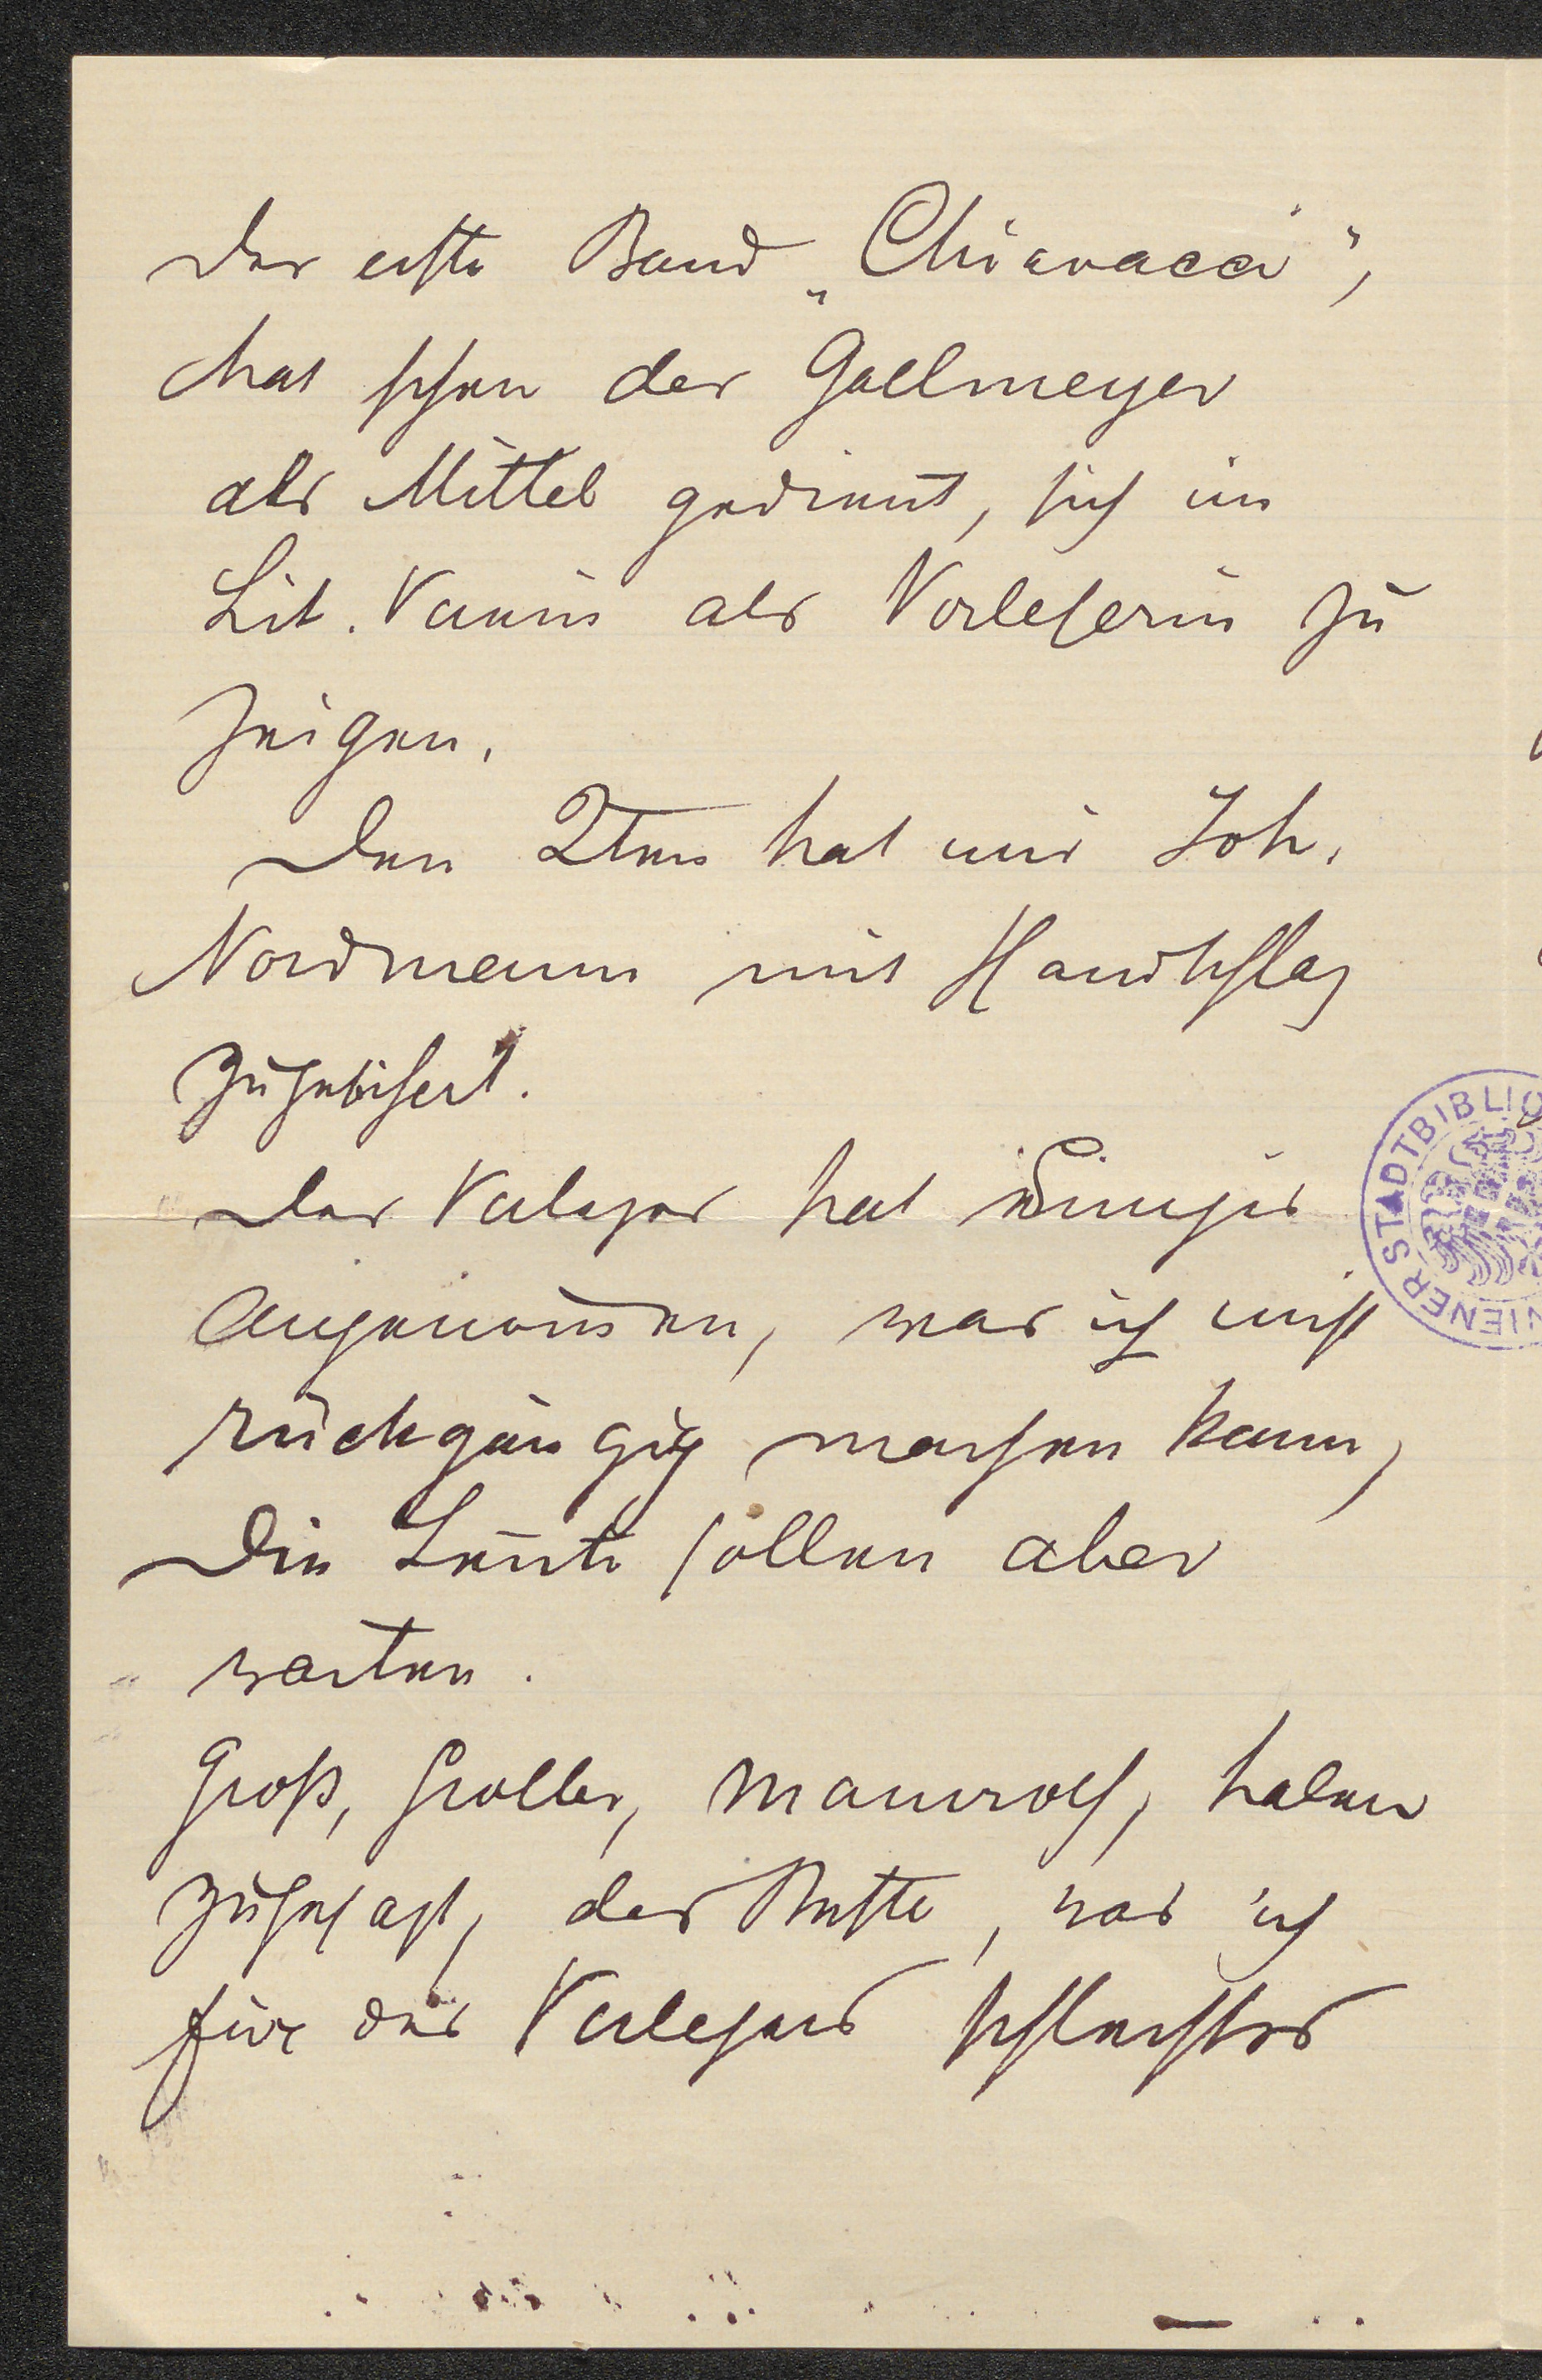 Der erste Band „Chiavacci",
hat schon der Gallmeyer
als Mittel gedient, sich im
Lit. Verein als Vorleserin zu
zeigen.
Den 2ten hat mir Joh.
Nordmann mit Handschlag
zugesichert.
Der Verleger hat Einiges
angenommen, was ich nicht
rückgängig machen kann,
Die Leute sollen aber
warten.
Groß, Groller, Mamroth, haben
zugesagt, das Beste, was ich
für des Verlegers schlechtes
WIENER STADTBIBLIO